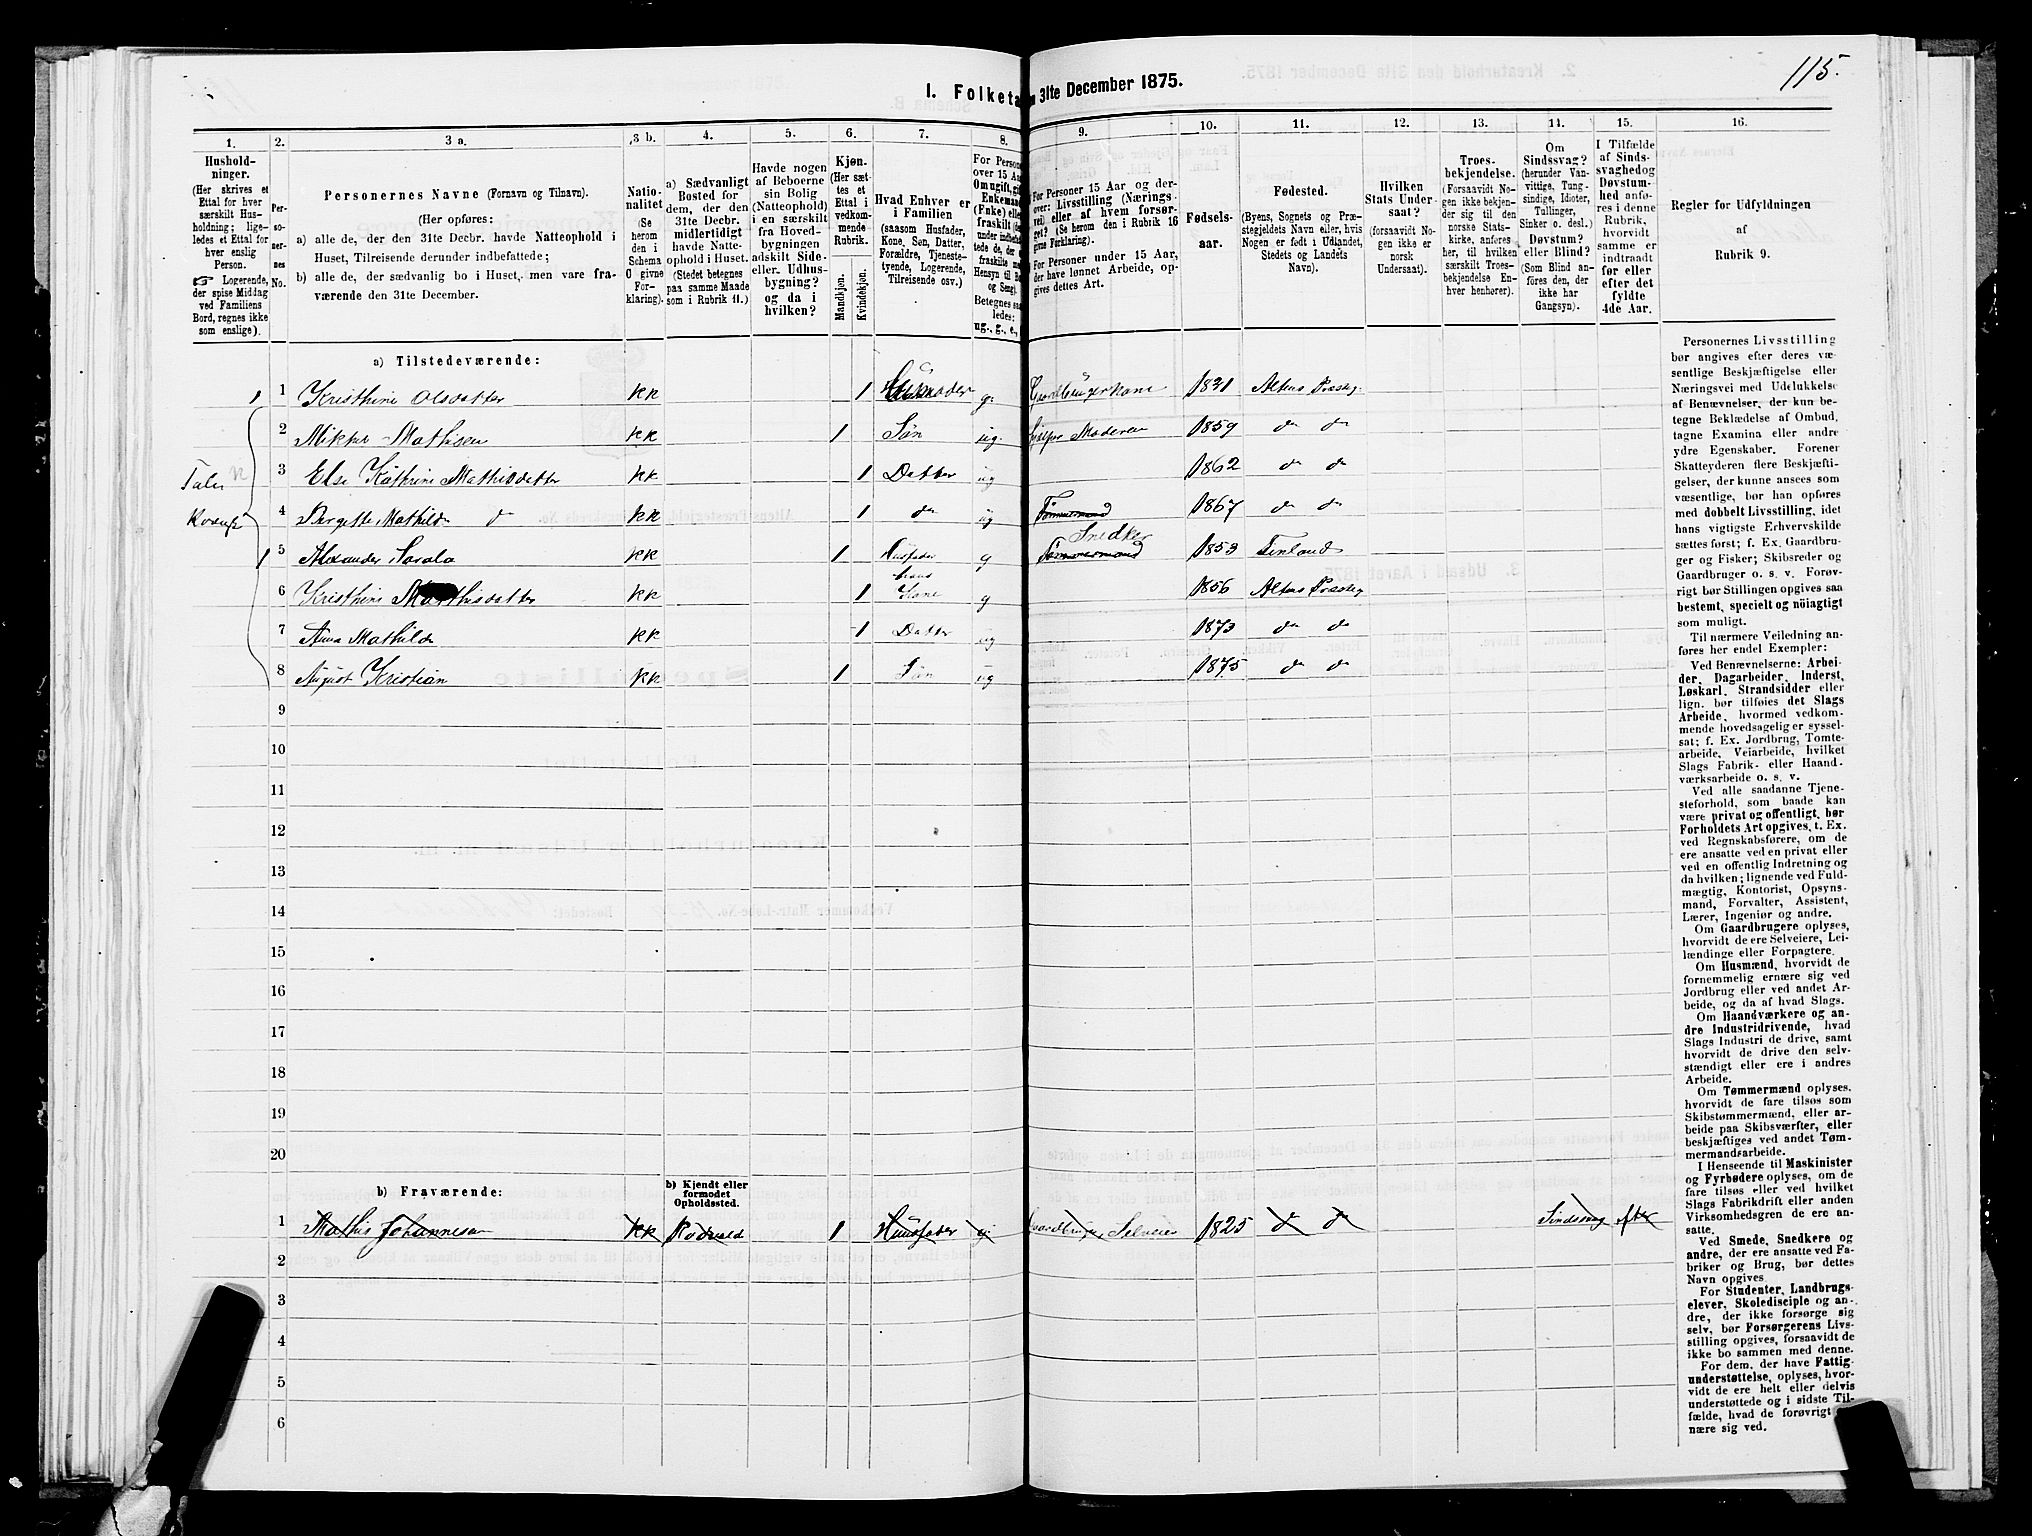 115.
I. Folketa
n 31te December 1875.
1.
Hushold-
ninger.
(Her skrives et
Ettal for hver
særskilt Hus-
holdning; lige-
ledes et Ettal for
hver enslig
Person.
☞ Logerende,
der spise Middag
ved Familiens
Bord, regnes ikke
som enslige).
2.
Per-
so-
ner-
nes
No.
3 a.
Personernes Navne (Fornavn og Tilnavn).
(Her opføres:
a) alle de, der den 31te Decbr. havde Natteophold i
Huset, Tilreisende derunder indbefattede;
b) alle de, der sædvanlig bo i Huset, men vare fra-
værende den 31te December.
3 b.
Natio-
nalitet
(Se
herom
den i
Schema
C givne
For-
klaring).
4.
a) Sædvanligt
Bosted for
dem, der den
31te Decbr.
midlertidigt
havde Natte-
ophold i Huset.
(Stedet betegnes
paa samme Maade
som i Rubrik 11.)
5.
Havde nogen
af Beboerne
sin Bolig
(Natteophold)
i en særskilt
fra Hoved-
bygningen
adskilt Side-
eller Udhus-
bygning?
og da i
hvilken?
6.
Kjøn.
(Her sæt-
tes et
Ettal i
vedkom-
mende
Rubrik.
Mandkjøn.
Kvindekjøn.
7.
Hvad Enhver er
i Familien
(saasom Husfader,
Kone, Søn, Datter,
Forældre, Tjeneste-
tyende, Logerende,
Tilreisende osv.)
8.
For Person
over 15 Aa
Om ugift, gif
Enkemand
(Enke) elle
fraskilt
9.
For Personer 15 Aar og der-
over: Livsstilling (Nærings-
vei) eller af hvem forsør-
get? (Se herom den i Rubrik 16
givne Forklaring.)
For Personer under 15 Aar,
der have lønnet Arbeide, op-
gives dettes Art.
10.
Fødsels-
aar.
11.
Fødested.
(Byens, Sognets og Præ-
stegjeldets Navn eller, hvis
Nogen er født i Udlandet,
Stedets og Landets
Navn).
12.
Hvilken
Stats Under-
saat?
(forsaavidt No-
gen ikke er
norsk
Undersaat).
13.
Troes-
bekjendelse.
(Forsaavidt No-
gen ikke bekjen-
der sig til den
norske Stats-
kirke, anføres
her, til hvilken
særskilt Troes-
bekjendelse En-
hver henhører).
14.
Om
Sindssvag?
(herunder Van-
vittige, Tung-
sindige, Idioter,
Tullinger,
Sinker o. desl.)
Døvstum?
eller Blind?
(Som Blind an-
føres den, der
ikke har
Gangsyn).
15.
I Tilfælde
af Sinds-
svaghed og
Døvstum-
hed anfø-
res i denne
Rubrik,
hvorvidt
samme er
indtraadt
før eller
efter det
fyldte
4de Aar.
16.
Regler for Udfyldningen
af
Rubrik 9.
a) Tilstedeværende:
1 1 Kristhine Olsdatter KK 1 g. Gaardbrugerkone 1831 Altens Præstegj.
2 Mikkel Mathisen KK 1 Søn ug. hjælper Moderen 1859 do do
Taler
3 Else Kathrine Mathisdatter KK 1 Datter ug 1862 do do
Kvænsk
4 Bergette Mathilde d KK 1 do ug Tømmermand 1867 do do
Snedker
1 5 Alexander Sarala KK 1 Husfader g Tømmermand 1853 Finland
hans
6 Kristhine Mathisdatter KK 1 Kone g 1856 Altens Præstegj
7 Anna Mathilde KK 1 Datter ug 1873 do do
8 August Kristian KK 1 Søn ug 1875 do do
9
10
11
12
13
14
15
16
17
18
19
20
b) Fraværende:
b) Kjendt eller
formodet
Opholdssted.
1 Mathis Johannesen KK Rodvald 1 Husfader g Gaardbruger Selveier 1825 d do Sindssvag efter
2
3
4
5
6
Personernes Livsstilling
bør angives efter deres væ-
sentlige Beskjæftigelse eller
Næringsvei med Udelukkelse
af Benævnelser, der kun be-
tegne Beklædelse af Ombud,
tagne Examina eller andre
ydre Egenskaber. Forener
Skatteyderen flere Beskjæfti-
gelser, der kunne ansees som
væsentlige, bør han opføres
med dobbelt Livsstilling, idet
hans vigtigste Erhvervskilde
sættes først; f. Ex. Gaardbru-
ger og Fisker; Skibsreder og
Gaardbruger o. s. v. Forøv-
rigt bør Stillingen opgives saa
bestemt, specielt og nöiagtigt
som muligt.
Til nærmere Veiledning an-
føres her endel Exempler:
Ved Benævnelserne: Arbei-
der, Dagarbeider, Inderst,
Løskarl, Strandsidder eller
lign. bør tilføies det Slags
Arbeide, hvormed vedkom-
mende hovedsagelig er syssel-
sat; f. Ex. Jordbrug, Tomte-
arbeide, Veiarbeide, hvilket
Slags Fabrik- eller Haand-
værksarbeide o. s. v.
Ved alle saadanne Tjene-
steforhold, som baade kan
være privat og offentligt, bør
Forholdets Art opgives, t. Ex.
ved Regnskabsførere, om de
ere ansatte ved en privat eller
ved en offentlig Indretning og
da hvilken; lignende ved Fuld-
mægtig, Kontorist, Opsyns-
mand, Forvalter, Assistent,
Lærer, Ingeniør og andre.
Om Gaardbrugere oplyses,
hvorvidt de ere Selveiere, Lei-
lændinge eller Forpagtere.
Om Husmænd, hvorvidt de
fornemmelig ernære sig ved
Jordbrug eller ved andet Ar-
beide, og da af hvad Slags.
Om Haandværkere og an-
dre Industridrivende, hvad
Slags Industri de drive, samt
hvorvidt de drive den selv-
stændigt eller ere i andres
Arbeide.
Om Tømmermænd oplyses,
hvorvidt de fare tilsøs som
Skibstømmermænd, eller ar-
beide paa Skibsværfter, eller
beskjæftiges ved andet Tøm-
mermandsarbeide.
I Henseende til Maskinister
og Fyrbødere oplyses, om de
fare tilsøs eller ved hvilket
Slags Fabrikdrift eller anden
Virksomhedsgren de ere an-
satte.
Ved Smede, Snedkere og
andre, der ere ansatte ved Fa-
briker og Brug, bør dettes
Navn opgives.
For Studenter, Landbrugs-
elever, Skoledisciple og an-
dre, der ikke forsørge sig
selv, bør Forsørgerens Livs-
stilling opgives, forsaavidt de
ikke bo sammen med denne.
For dem, der have Fattig-
understøttelse, oplyses, hvor-
vidt de ere helt eller delvis
understøttede og i sidste Til-
fælde, hvad de forøvrigt er-
nære sig ved.